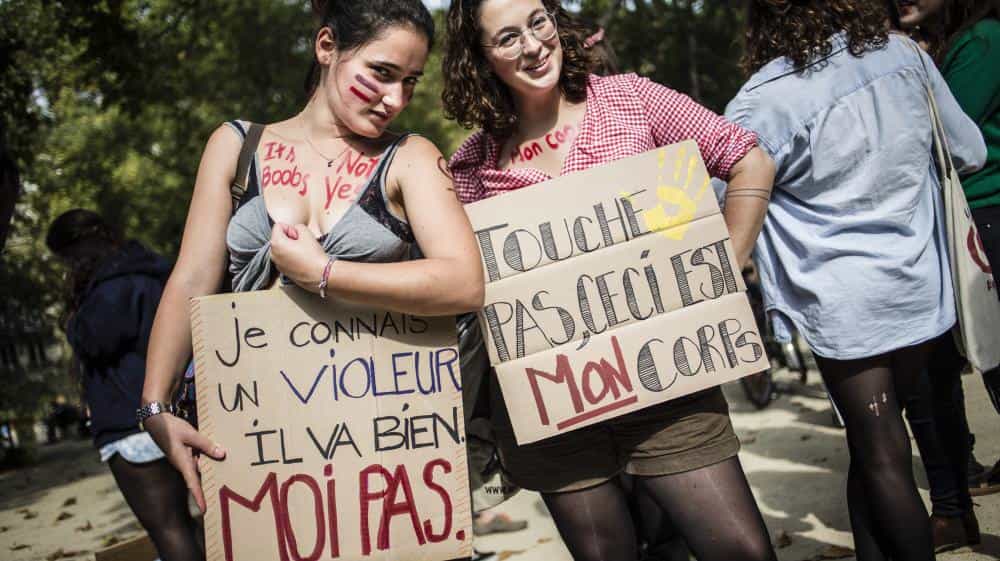 It's Not
Boobs Yes
Mon Corp
je CONNAIS
UN VIOLEUR
IL VA BIEN.
MOI PAS.
TOUCHE
PAS, CECI EST
MON CORPS
www.